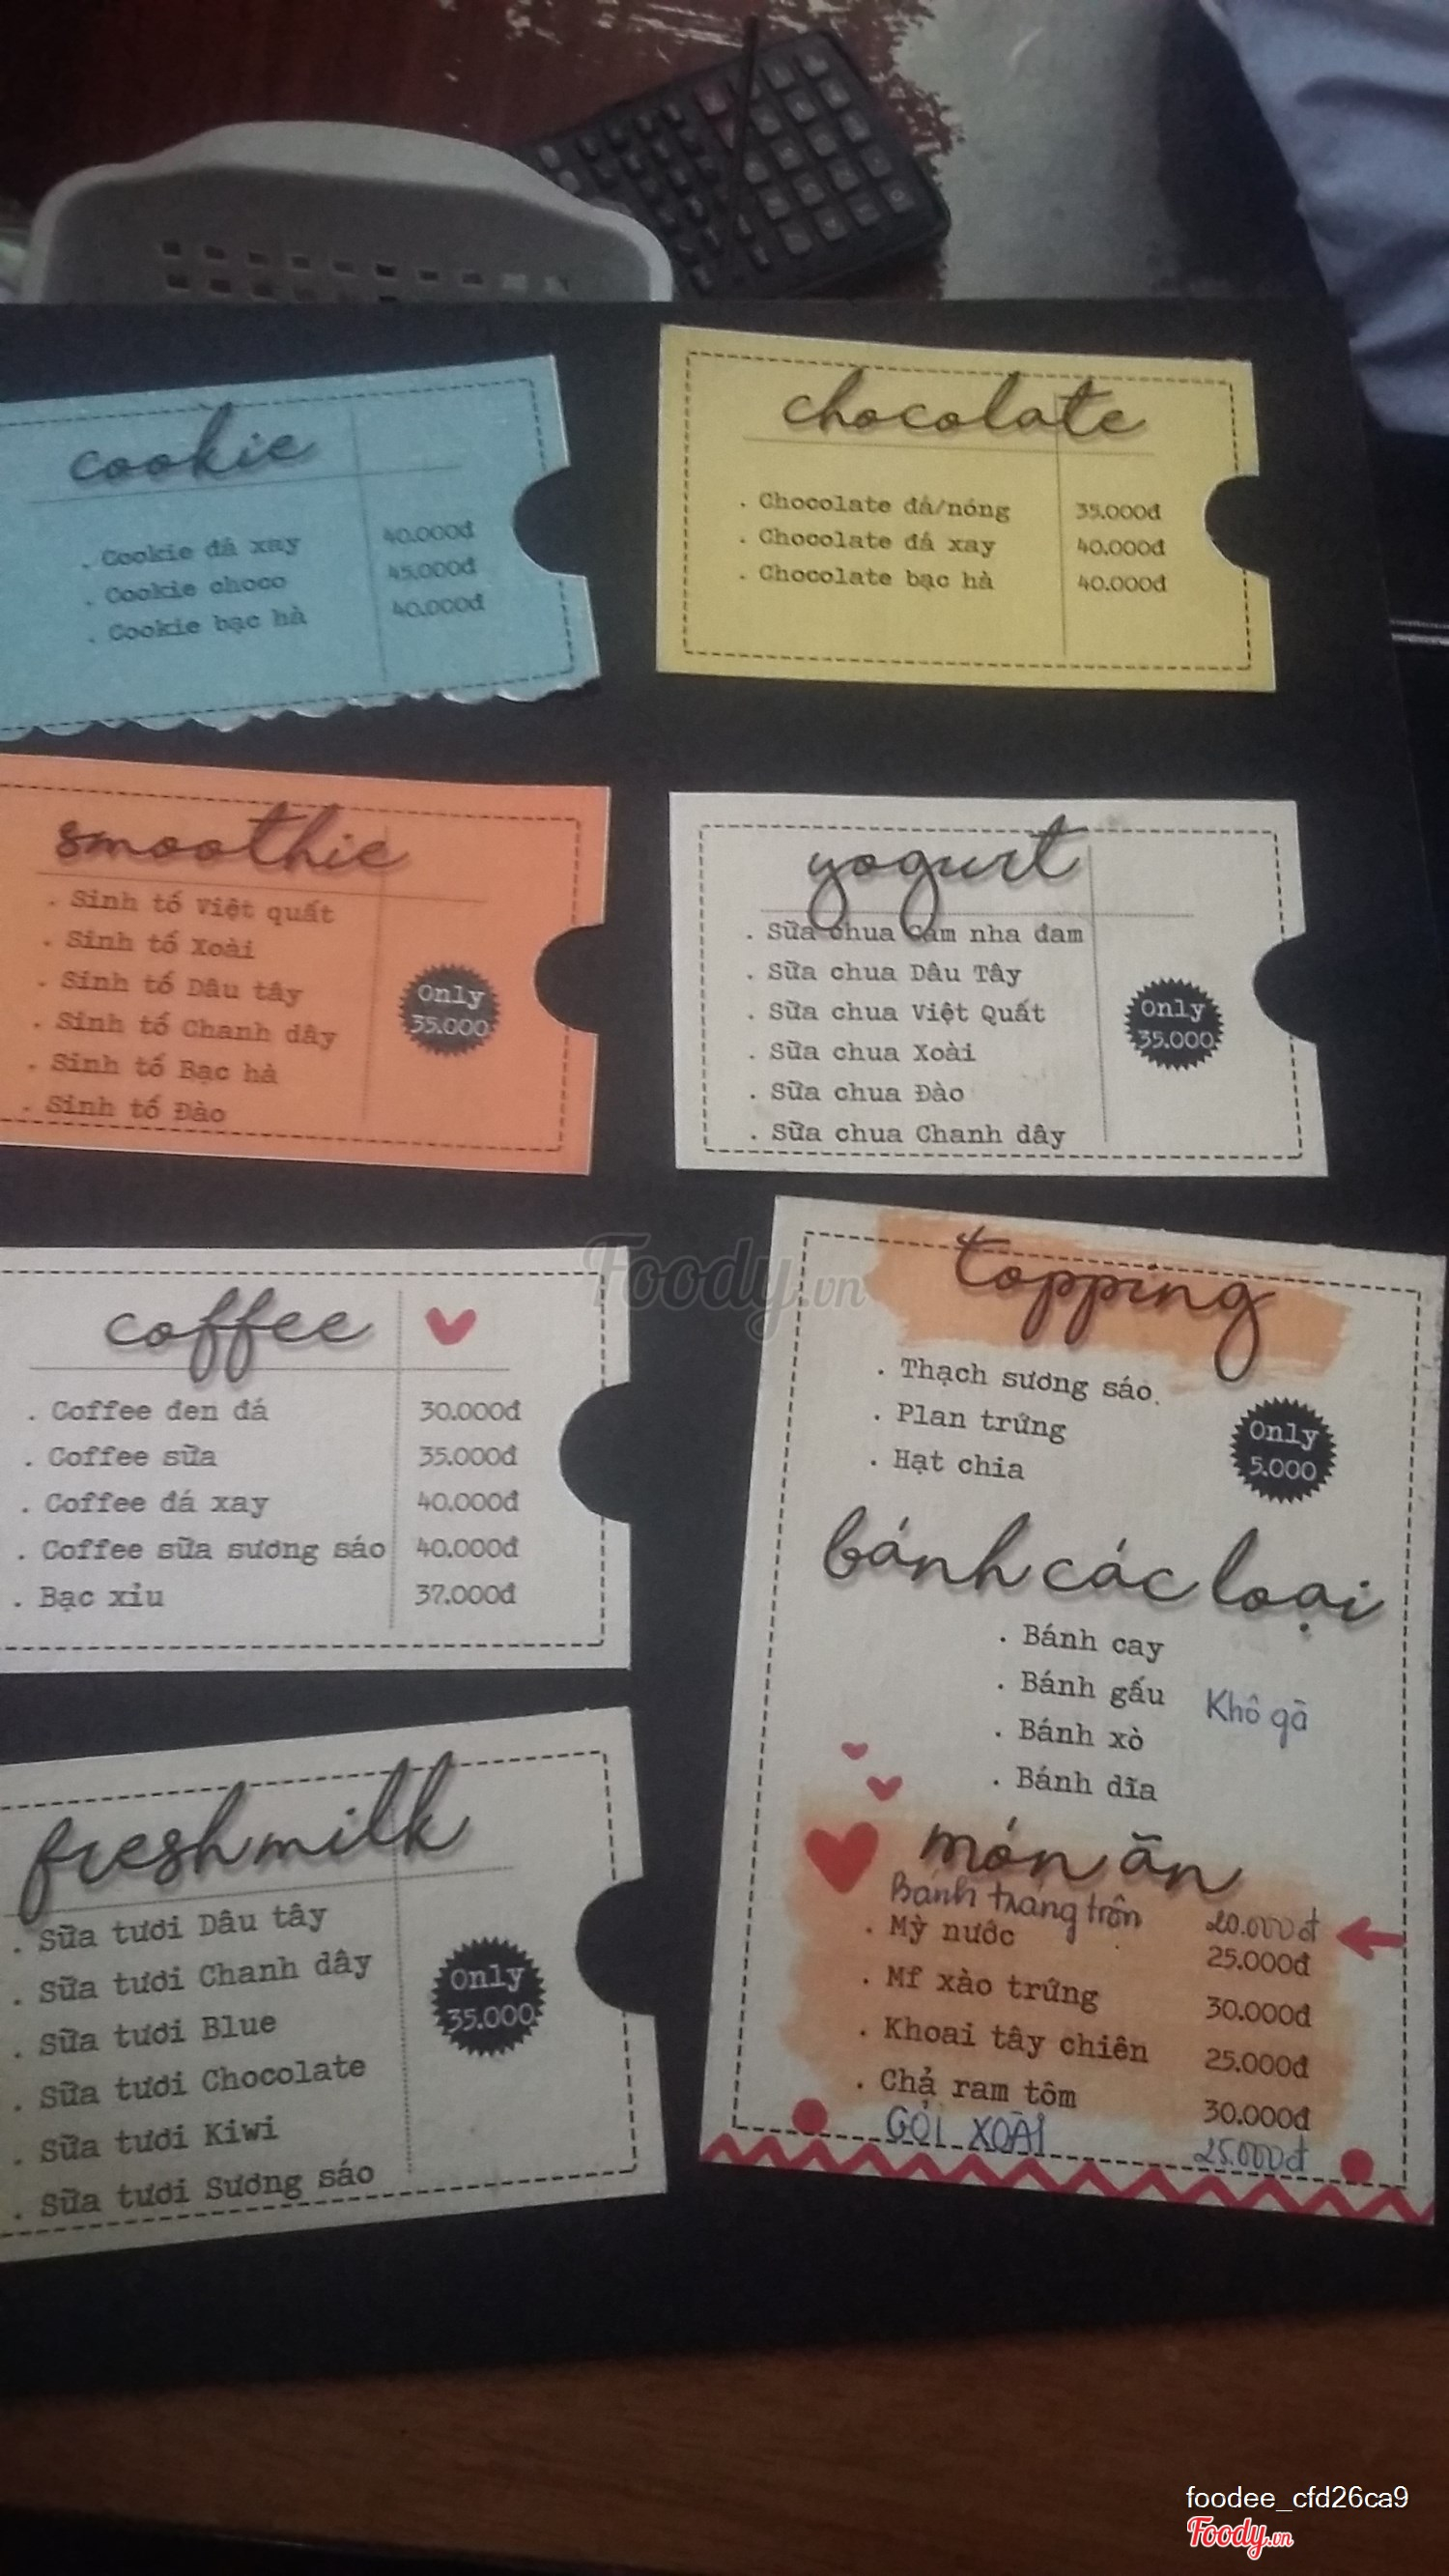 cookie
. Cookie đá xay 40.000đ
. Cookie choco 45.000đ
. Cookie bạc hà 40.000đ
chocolate
. Chocolate đá/nóng 35.000đ
. Chocolate đá xay 40.000đ
. Chocolate bạc hà 40.000đ
smoothie
. Sinh tố Việt quất
. Sinh tố Xoài
. Sinh tố Dâu tây
. Sinh tố Chanh dây
. Sinh tố Bạc hà
. Sinh tố Đào
Only
35.000
yogurt
. Sữa chua Cam nha đam
. Sữa chua Dâu Tây
. Sữa chua Việt Quất
. Sữa chua Xoài
. Sữa chua Đào
. Sữa chua Chanh dây
Only
35.000
coffee
. Coffee đen đá 30.000đ
. Coffee sữa 35.000đ
. Coffee đá xay 40.000đ
. Coffee sữa sương sáo 40.000đ
. Bạc xỉu 37.000đ
freshmilk
. Sữa tươi Dâu tây
. Sữa tươi Chanh dây
. Sữa tươi Blue
. Sữa tươi Chocolate
. Sữa tươi Kiwi
. Sữa tươi Sương sáo
Only
35.000
topping
. Thạch sương sáo
. Plan trứng
. Hạt chia
Only
5.000
bánh các loại
. Bánh cay
. Bánh gấu
. Bánh xò
. Bánh dĩa
Khô gà
món ăn
Bánh tráng trộn 20.000đ
. Mỳ nước 25.000đ
. Mf xào trứng 30.000đ
. Khoai tây chiên 25.000đ
. Chả ram tôm 30.000đ
GỎI XOÀI 25.000đ
Foody.vn
foodee_cfd26ca9
Foody.vn